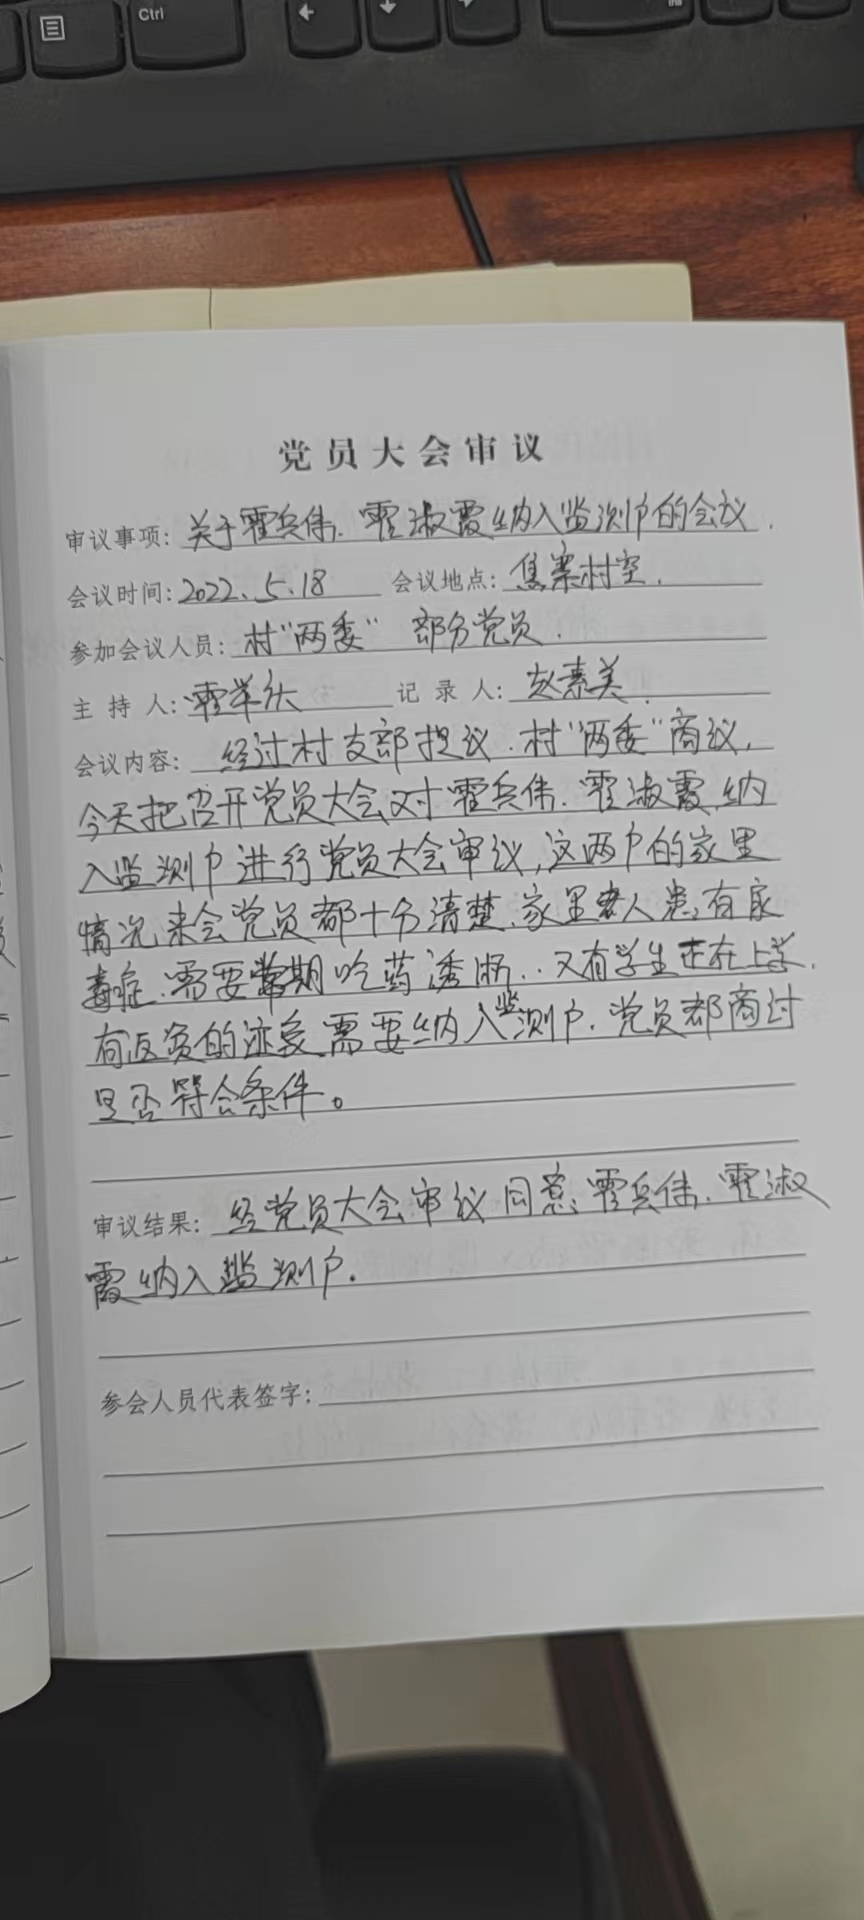 Ctrl
党员大会审议
审议事项: 关于霍兵伟、霍淑霞纳入监测户的会议.
会议时间: 2022.5.18 会议地点: 焦寨村室.
参加会议人员: 村“两委” 部分党员.
主持人: 霍举 记录人: 赵素美.
会议内容: 经过村支部提议.村“两委”商议,
今天把召开党员大会对霍兵伟、霍淑霞纳
入监测户进行党员大会审议,这两户的家里
情况来会党员都十分清楚,家里老人患有尿
毒症.需要常期吃药透析..又有学生正在上学.
有返贫的迹象需要纳入监测户.党员都商讨
是否符合条件。
审议结果: 经党员大会审议同意霍兵伟、霍淑
霞纳入监测户.
参会人员代表签字: